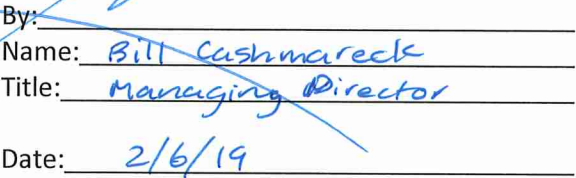 By:
Name: Bill Cashmareck
Title: Managing Director
Date: 2/6/19